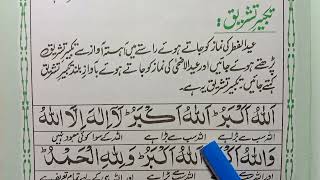 تکبیر تشریق:
عید الفطر کی نماز کو جاتے ہوئے راستے میں آہستہ آواز سے تکبیر تشریق
پڑھتے ہوئے جائیں اور عید الاضحیٰ کی نماز کو جاتے ہوئے باآواز بلند تکبیر تشریق
کہتے جائیں۔ تکبیر تشریق یہ ہے۔
اَللّٰهُ اَکْبَرُ اَللّٰهُ اَکْبَرُ لَآ اِلٰهَ اِلَّا اللّٰهُ
اللہ سب سے بڑا ہے اللہ سب سے بڑا ہے اللہ کے سوا کوئی معبود نہیں
وَاللّٰهُ اَللّٰهُ اَکْبَرُ وَلِلّٰهِ الْحَمْدُ